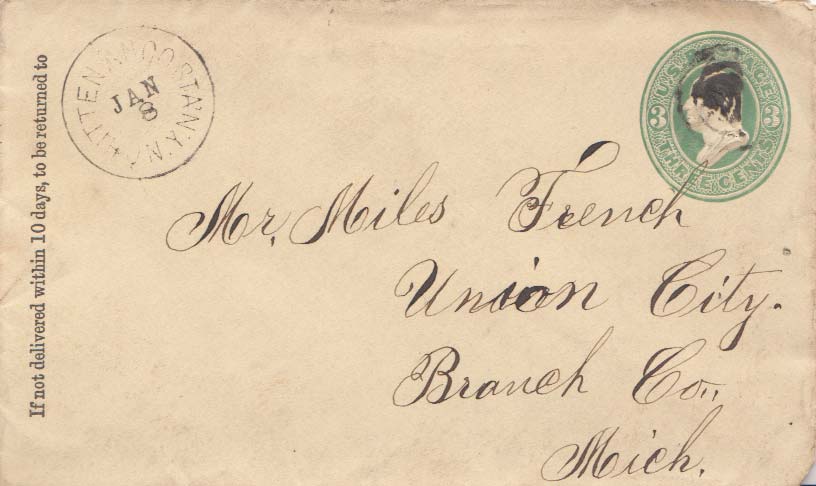 If not delivered within 10 days, to be returned to
CHITTENANGO STAN. N.Y.
JAN
8
U.S.
3 3
THREE CENTS
Mr. Miles French
Union City.
Branch Co.,
Mich.